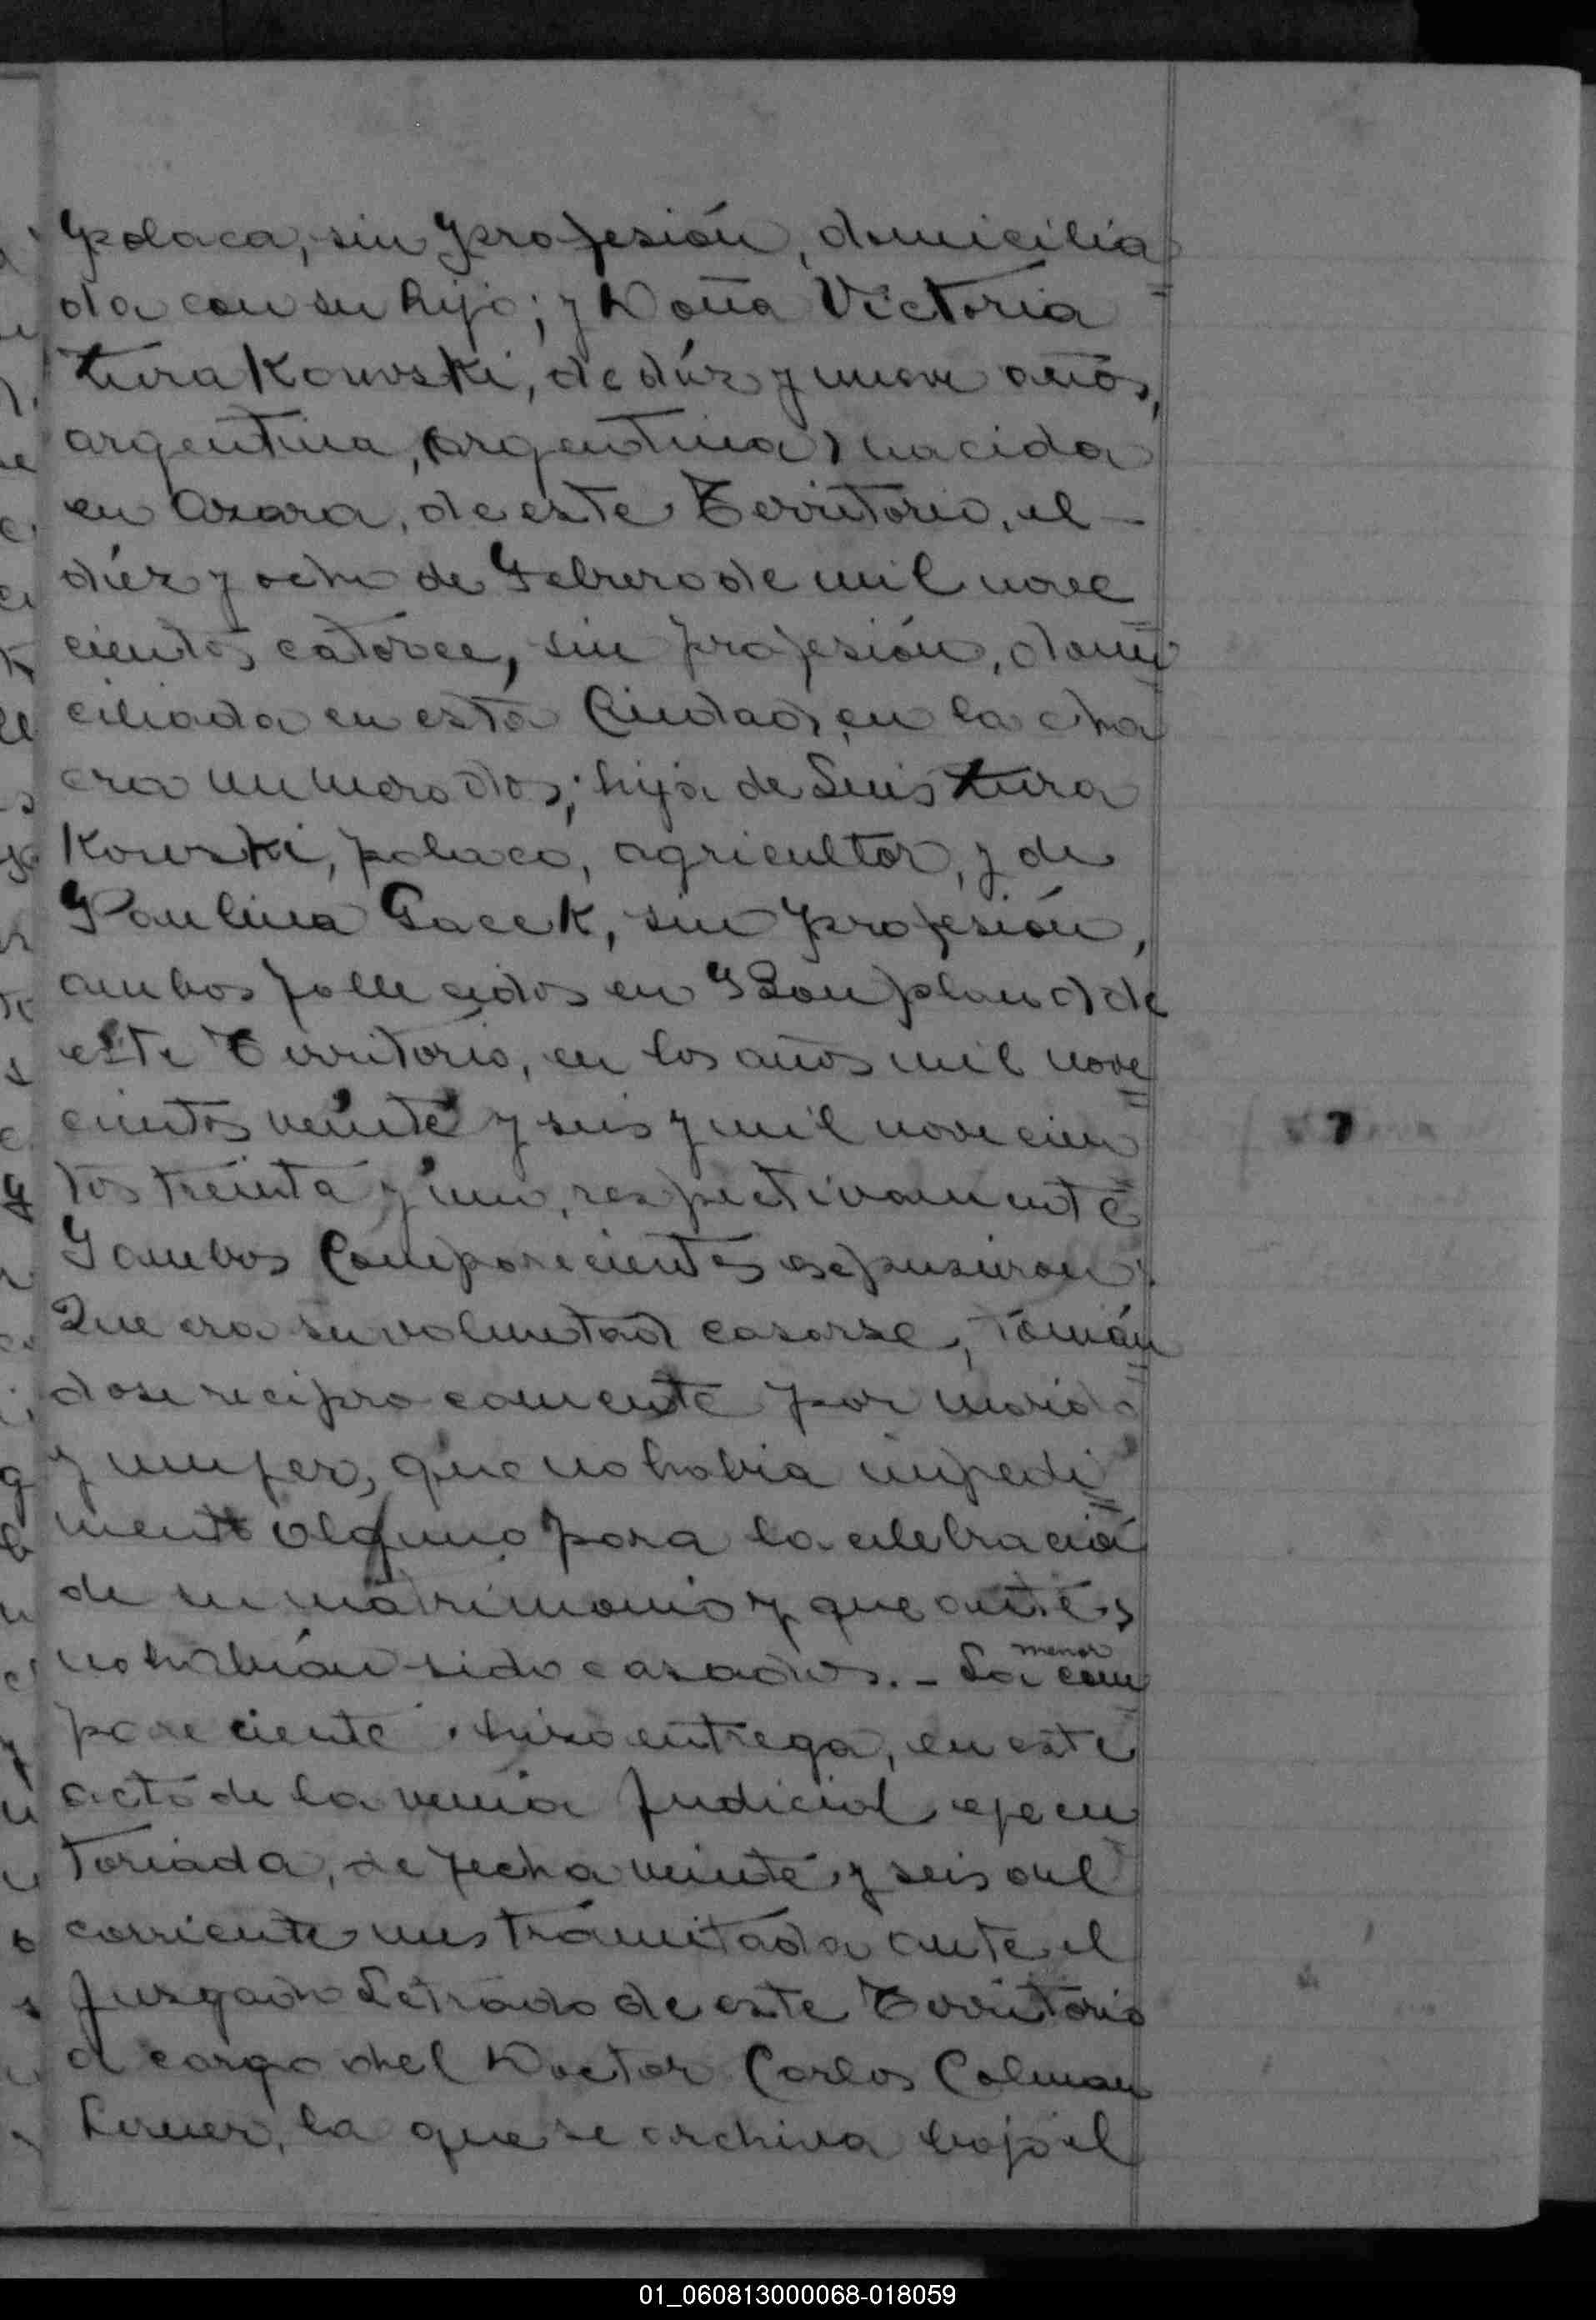 polaca, sin profesión, domicilia
da con su hijo; y Doña Victoria
Zurakowski, de diéz y nueve años,
argentina, (argentina) nacida
en Azara, de este Territorio, el -
diéz y ocho de Febrero de mil nove
cientos catorce, sin profesión, domi
ciliada en esta Ciudad, en la cha
cra numero dos; hija de Luis Zura
Kowski, polaco, agricultor, y de
Paulina Gacek, sin profesión,
ambos fallecidos en Bonpland de
este Territorio, en los años mil nove
cientos veinte y seis y mil novecien
tos treinta y uno, respectivamente
Y ambos Comparecientes expusieron:
Que era su voluntad casarse, tomán
dose reciprocamente por marido
y mujer, que no habia impedi
mento alguno para la celebració
de su matrimonio y que antes
no habían sido casados. - La menor com
pareciente hizo entrega, en este
acto de la venia Judicial ejecu
toriada, de fecha veinte y seis del
corriente mes tramitada ante el
Juzgado Letrado de este Territorio
a cargo del Doctor Carlos Colman
Lerner, la que se archiva bajo el
01_060813000068-018059